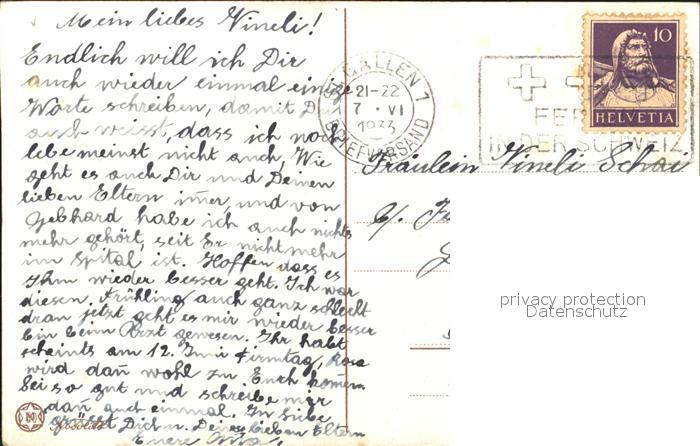 Mein liebes Vineli!
Endlich will ich Dir
auch wieder einmal einige
Worte schreiben, damit Du
auch weisst, dass ich noch
lebe meinst nicht auch, Wie
geht es auch Dir und Deinen
lieben Eltern imer, und von
Gebhard habe ich auch nichts
mehr gehört, seit Er nicht mehr
im Spital ist. Hoffen dass es
Ihm wieder besser geht. Ich war
diesen Frühling auch ganz schlecht
dran jetzt geht es mir wieder besser
bin beim Arzt gewesen. Ihr habt
scheints am 12. Juni Firmtag, Rosa
wird dan̄ wohl zu Euch kom̄en
Sei so gut und schreibe mir
dan̄ auch einmal. In liebe
grüsst Dich u. Deine lieben Eltern
Euere
ST. GALLEN 1
21-22
7. VI
1933
BRIEFVERSAND
FER
IN DER SCHWEIZ
10
HELVETIA
Fräulein Vineli Schai
c/.
privacy protection
Datenschutz